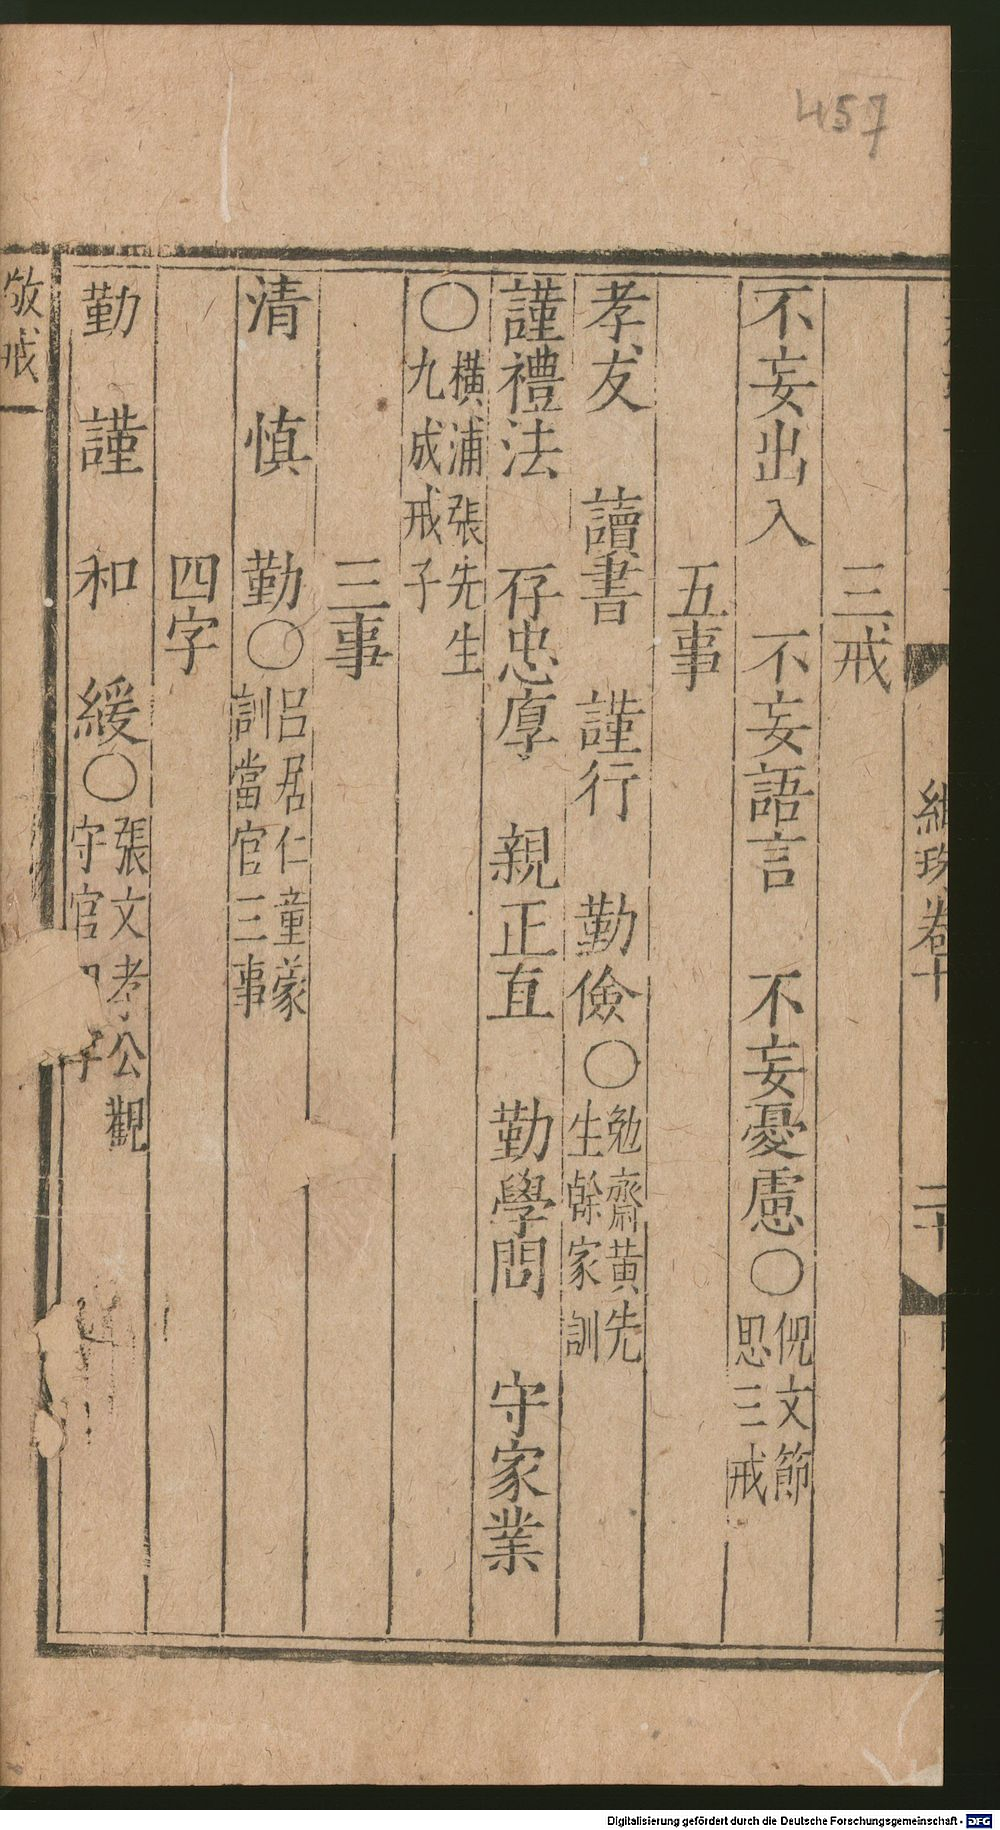 457
卷十
二十
三戒
不妄出入　不妄語言　不妄憂慮〇倪文節思三戒
五事
孝友　讀書　謹行　勤儉〇勉齋黃先生榦家訓
謹禮法　存忠厚　親正直　勤學問　守家業
〇橫浦張先生九成戒子
三事
清　慎　勤〇呂居仁童蒙訓當官三事
四字
勤　謹　和　緩〇張文孝公觀守官
敬戒
Digitalisierung gefördert durch die Deutsche Forschungsgemeinschaft - DFG